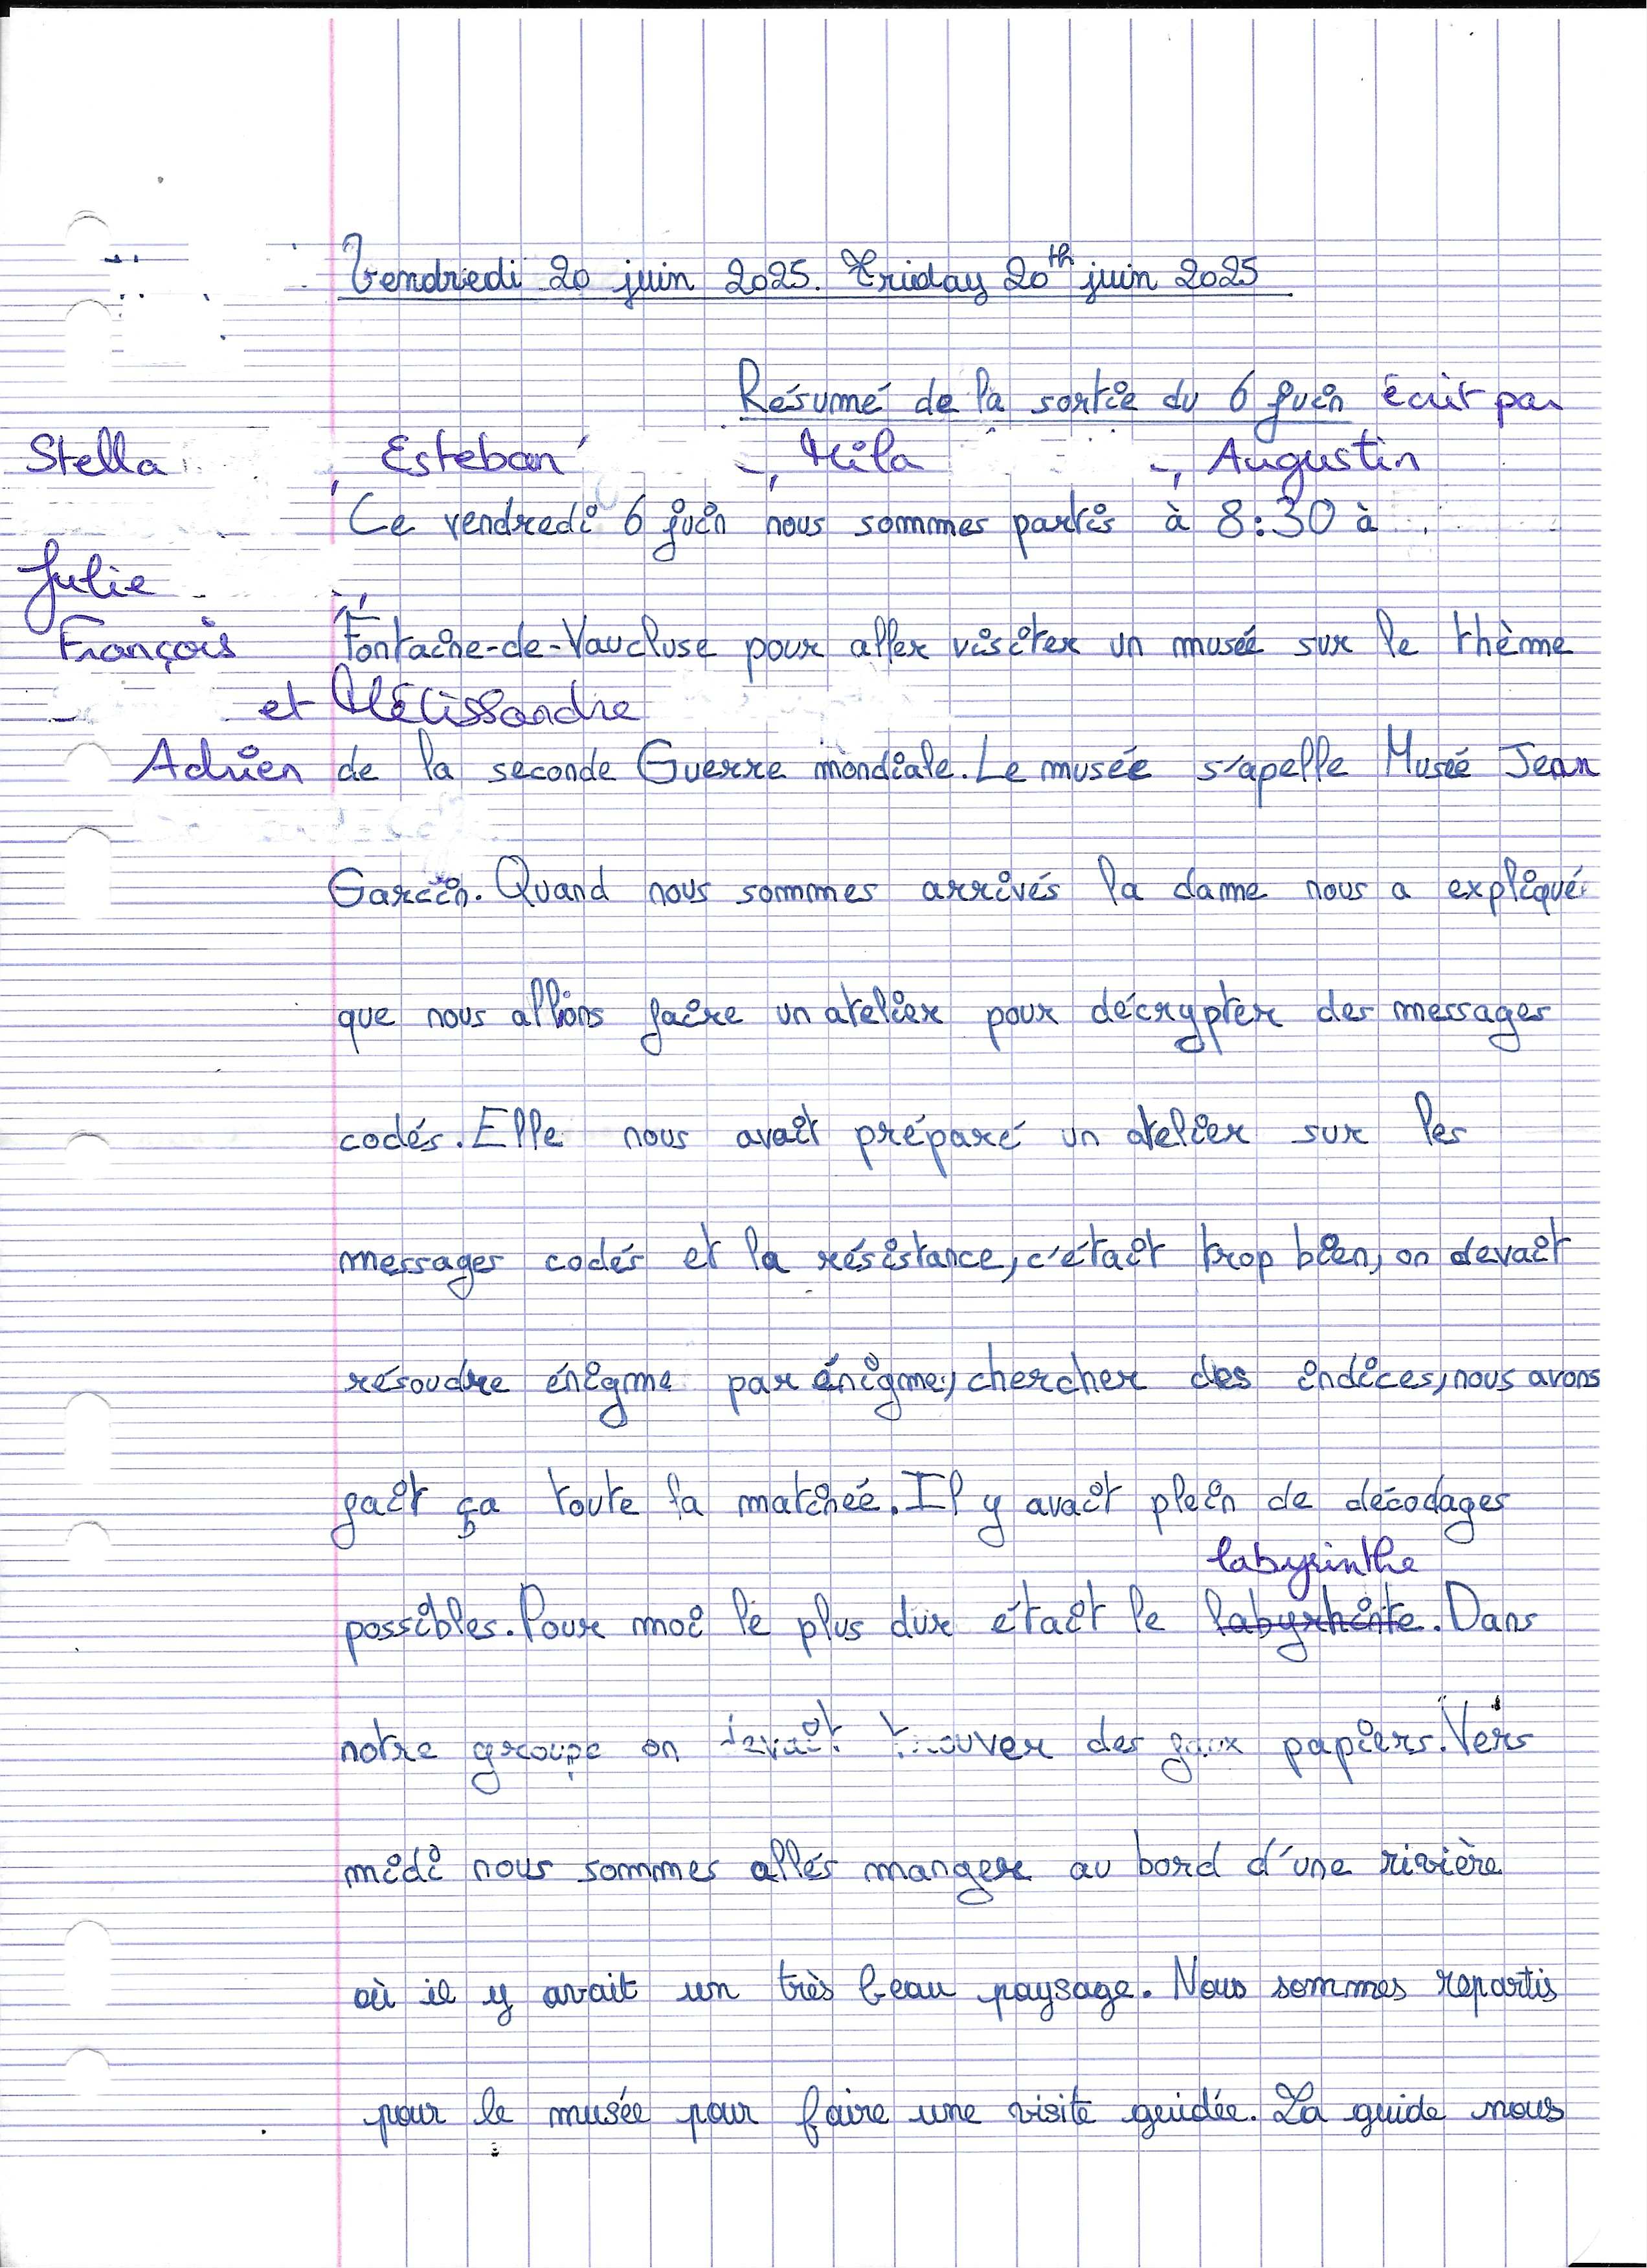 Vendredi 20 juin 2025. Friday 20th juin 2025
Résumé de la sortie du 6 juin écrit par
Stella, Esteban, Mila, Augustin,
Ce vendredi 6 juin nous sommes partis à 8:30 à
Julie,
François Fontaine-de-Vaucluse pour aller visiter un musée sur le thème
et Mélissandre
Adrien de la seconde Guerre mondiale. Le musée s'apelle Musée Jean
Garcin. Quand nous sommes arrivés la dame nous a expliqué
que nous allions faire un atelier pour décrypter des messages
codés. Elle nous avait préparé un atelier sur les
messages codés et la résistance, c'était trop bien, on devait
résoudre énigme par énigme, chercher des indices, nous avons
fait ça toute la matinée. Il y avait plein de décodages
labyrinthe
possibles. Pour moi le plus dur était le labyrhinte. Dans
notre groupe on devait trouver des faux papiers. Vers
midi nous sommes allés manger au bord d'une rivière
où il y avait un très beau paysage. Nous sommes repartis
pour le musée pour faire une visite guidée. La guide nous